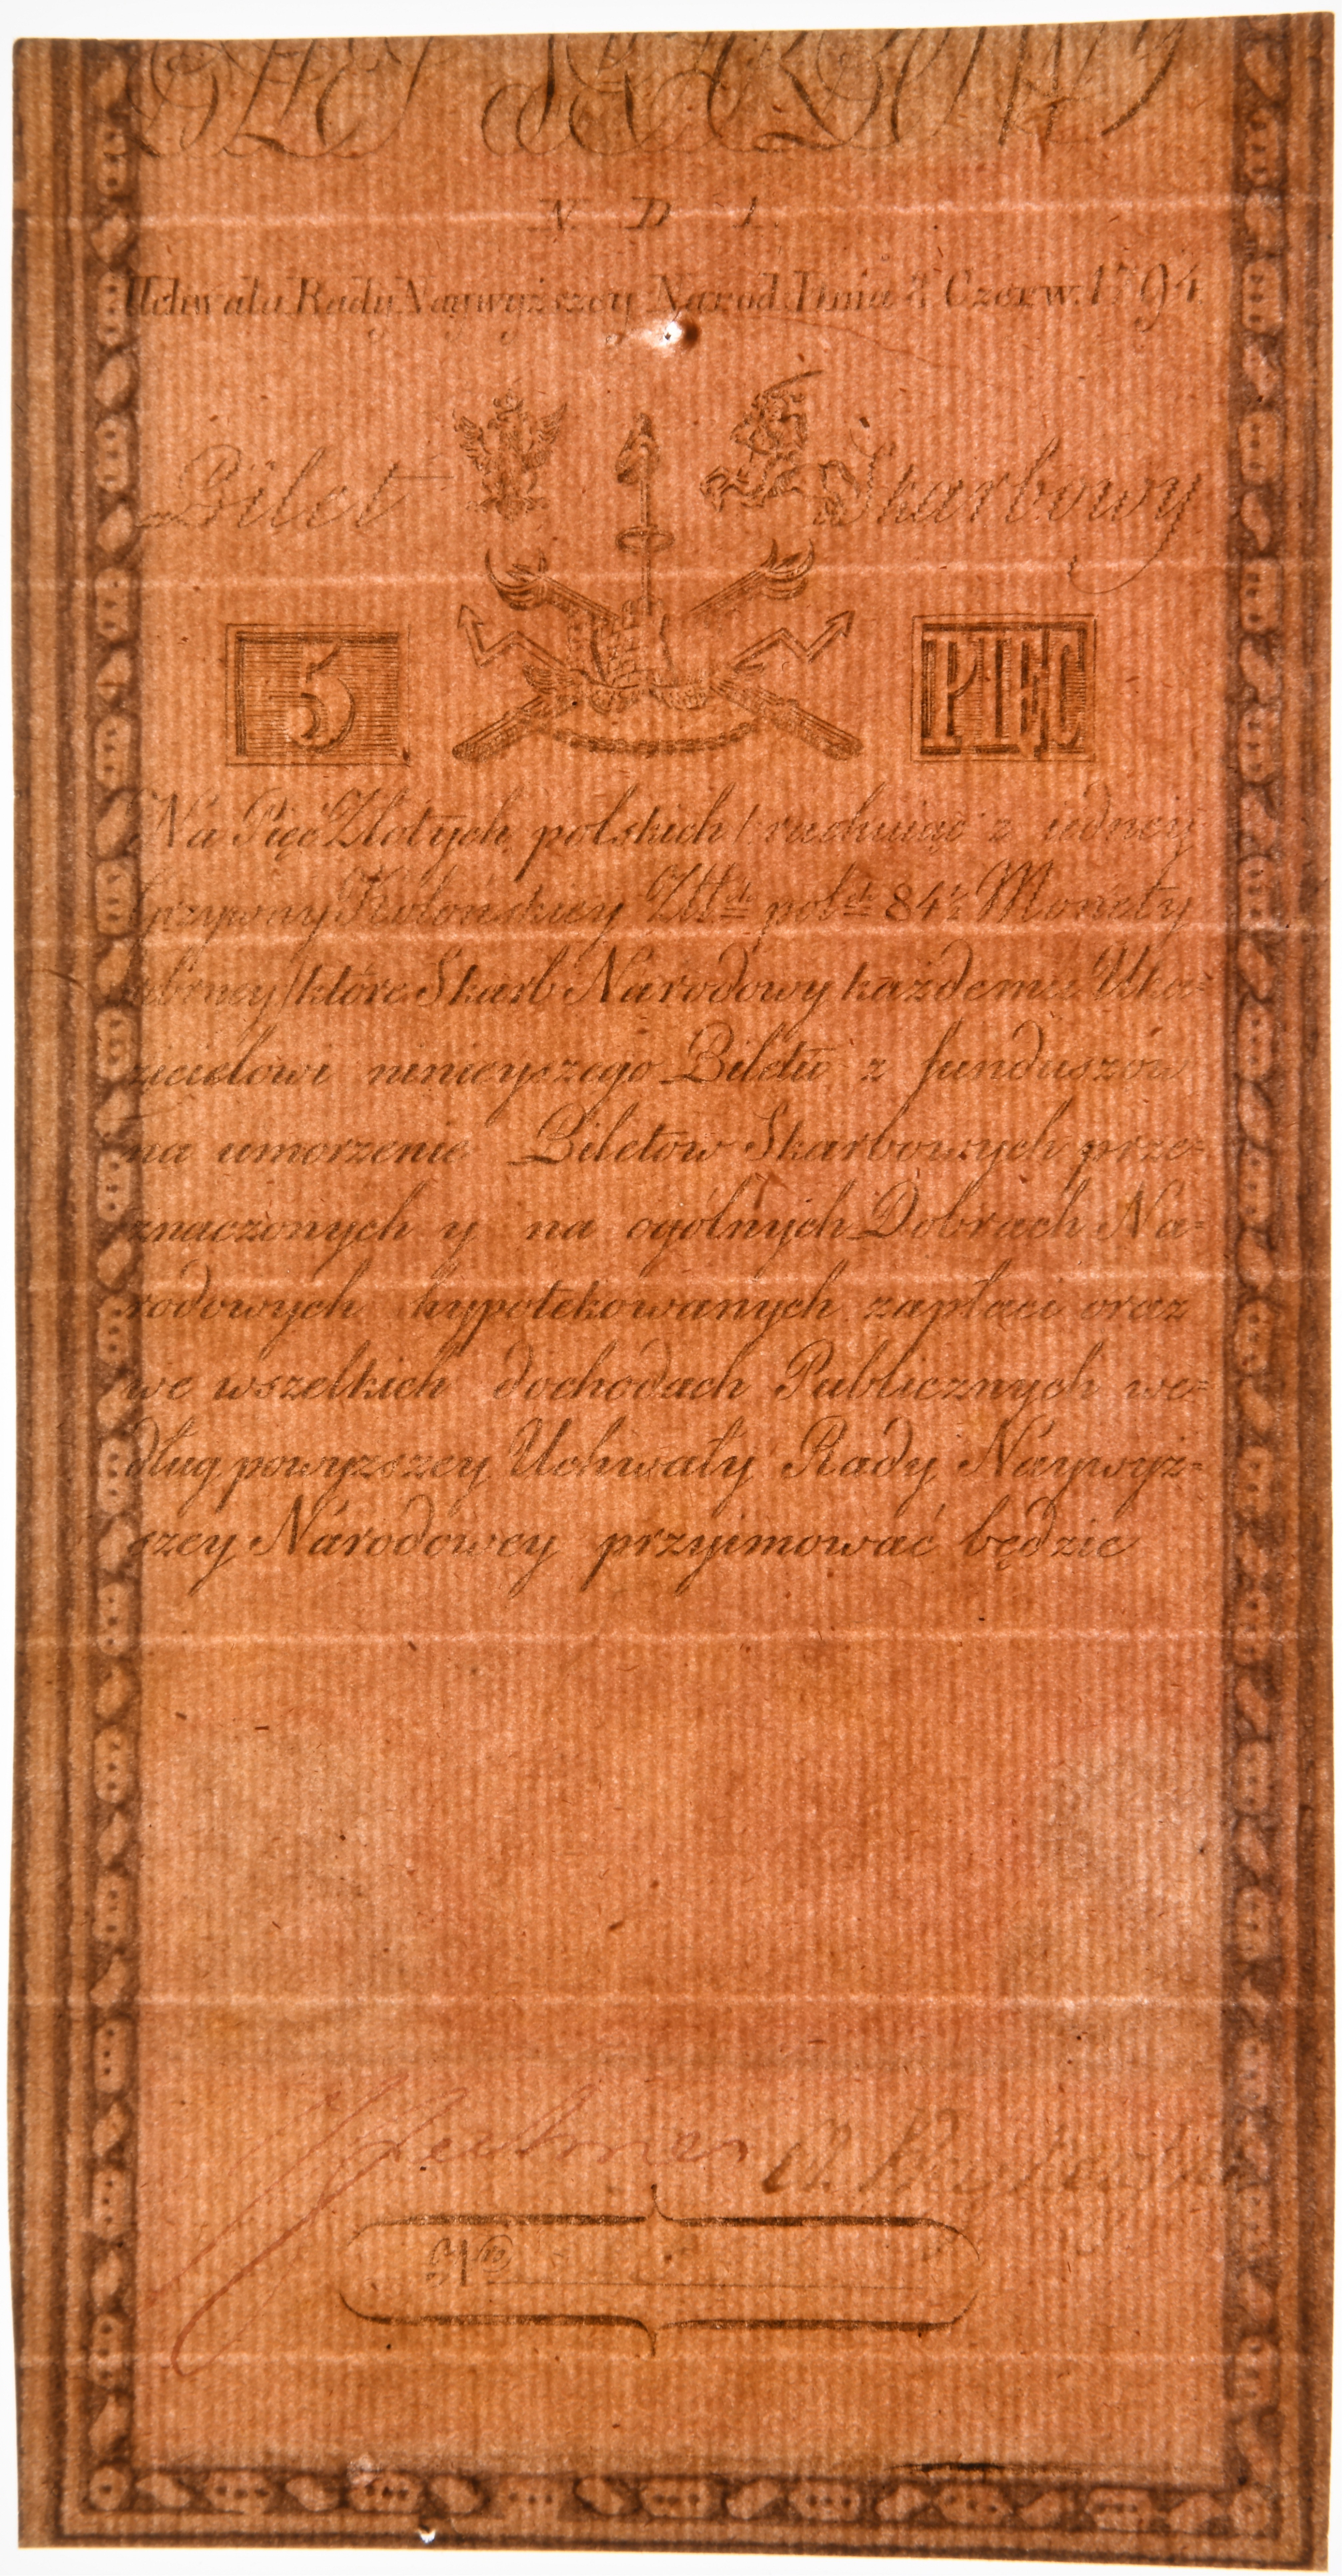 N D 1.
Uchwała Rady Naywyższey Narod. Dnia 8 Czerw. 1794
Bilet Skarbowy
5 PIĘĆ
Na Pięć Złotych polskich / rachuiąc z iedney
Grzywny Kolońskiey Zł polch 84½ Monety
srebrney / które Skarb Narodowy każdemu Uka-
zicielowi ninieyszego Biletu z funduszów
na umorzenie Biletów Skarbowych prze-
znaczonych y na ogólnych Dobrach Na=
rodowych hypotekowanych zapłaci oraz
we wszelkich dochodach Publicznych we=
dług powyższey Uchwały Rady Naywyż=
szey Narodowey przyimować będzie